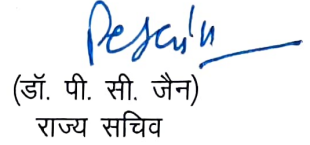 (डॉ. पी. सी. जैन)
राज्य सचिव